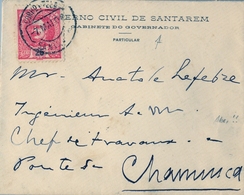 GOVERNO CIVIL DE SANTAREM
GABINETE DO GOVERNADOR
PARTICULAR
Mr. Anatole Lefebre
Ingénieur de M
Chef de travaux
Ponte da
Chamusca